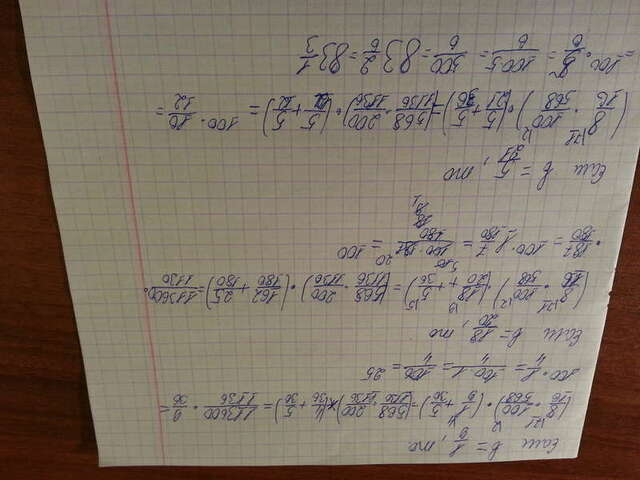 Если b = 1/9, то
(8/16 · 100/568) · (1/9 + 5/36) = (568/1136 · 200/1136) · (4/36 + 5/36) = 113600/1136 · 9/36 =
100 · 1/4 = 100·1/4 = 100/4 = 25
Если b = 18/20, то
(8/16 · 100/568) · (18/20 + 5/36) = (568/1136 · 200/1136) · (162/180 + 25/180) = 113600/1136 ·
· 187/180 = 100 · 1 7/180 = = 100
Если b = 5/21, то
(8/16 · 100/568) · (5/21 + 5/36) = (568/1136 · 200/1136) · = 100 · 10/12 =
= 100 · 5/6 = 100·5/6 = 500/6 = 83 2/6 = 83 1/3